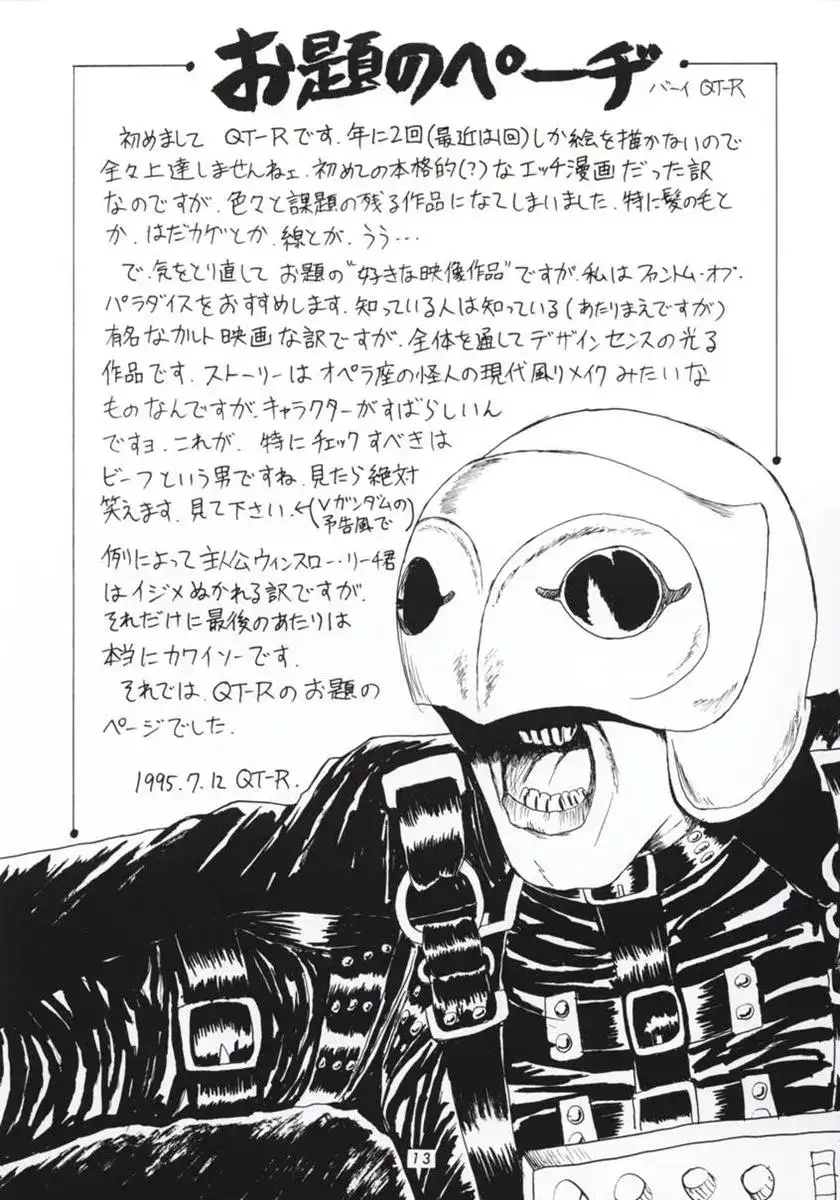 お題のページ
バーイ QT-R
初めまして QT-Rです.年に2回(最近は1回)しか絵を描かないので
全々上達しませんねェ.初めての本格的(?)なエッチ漫画だった訳
なのですが.色々と課題の残る作品になてしまいました.特に髪の毛と
か.はだカゲとか.線とか.うう…
で.気をとり直して お題の"好きな映像作品"ですが.私はファントム・オブ・
パラダイスをおすすめします.知っている人は知っている(あたりまえですが)
有名なカルト映画な訳ですが.全体を通してデザインセンスの光る
作品です.ストーリーはオペラ座の怪人の現代風リメイクみたいな
ものなんですが.キャラクターがすばらしいん
ですョ.これが.特にチェックすべきは
ビーフという男ですね.見たら絶対
笑えます.見て下さい.←(Vガンダムの
予告風で)
例によって主人公ウィンスロー・リーチ君
はイジメぬかれる訳ですが.
それだけに最後のあたりは
本当にカワイソーです.
それでは.QT-Rのお題の
ページでした.
1995.7.12 QT-R.
13